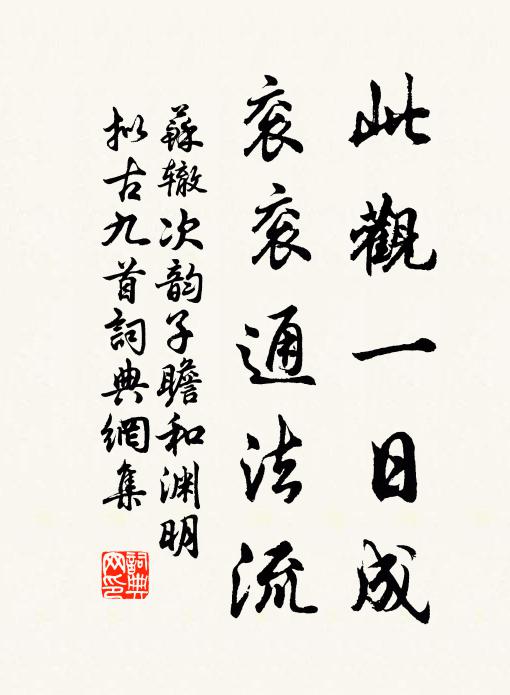 此觀一日成
衮衮通法流
蘇辙次韵子瞻和渊明
拟古九首詞典網集
詞典网印